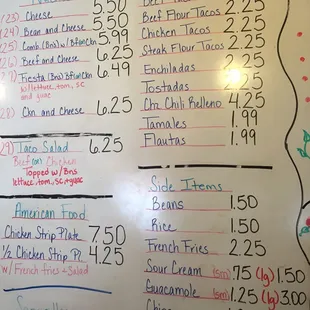 5.50
(23) Cheese 5.50
(24) Bean and Cheese 5.99
(25) Comb. (Bns) w/
(26) Beef and Cheese 6.25
Fiesta (Bns) 6.49
w/lettuce, tom, sc
and guac
(28) Ckn. and Cheese 6.25
(29) Taco Salad 6.25
Beef (or) Chicken
Topped w/Bns
lettuce, tom, sc, + guac
American Food
Chicken Strip Plate 7.50
1/2 Chicken Strip Pl. 4.25
w/ French fries + Salad
Tacos 2.25
Beef Flour Tacos 2.25
Chicken Tacos 2.25
Steak Flour Tacos 2.25
Enchiladas 2.25
Tostadas 2.25
Chs. Chili Relleno 4.25
Tamales 1.99
Flautas 1.99
Side Items
Beans 1.50
Rice 1.50
French Fries 2.25
Sour Cream (sm) .75 (lg) 1.50
Guacamole (sm) 1.25 (lg) 3.00